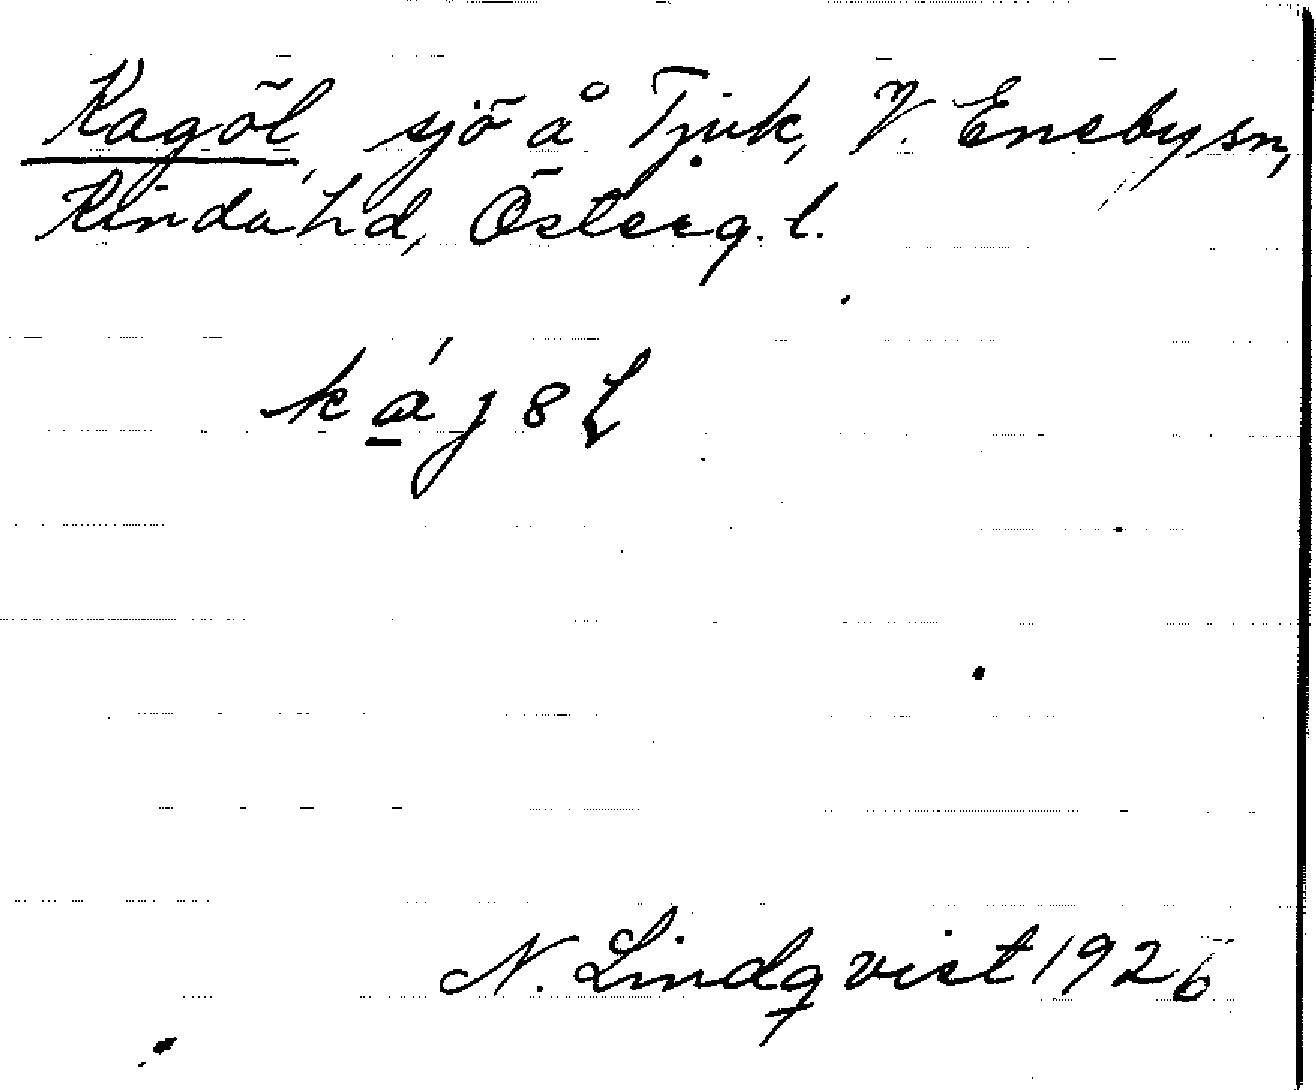 Kagöl, sjö å Tjuk, V. Eneby sn,
Kinda hd, Österg. l.
ká̱j8L
N. Lindqvist 1926